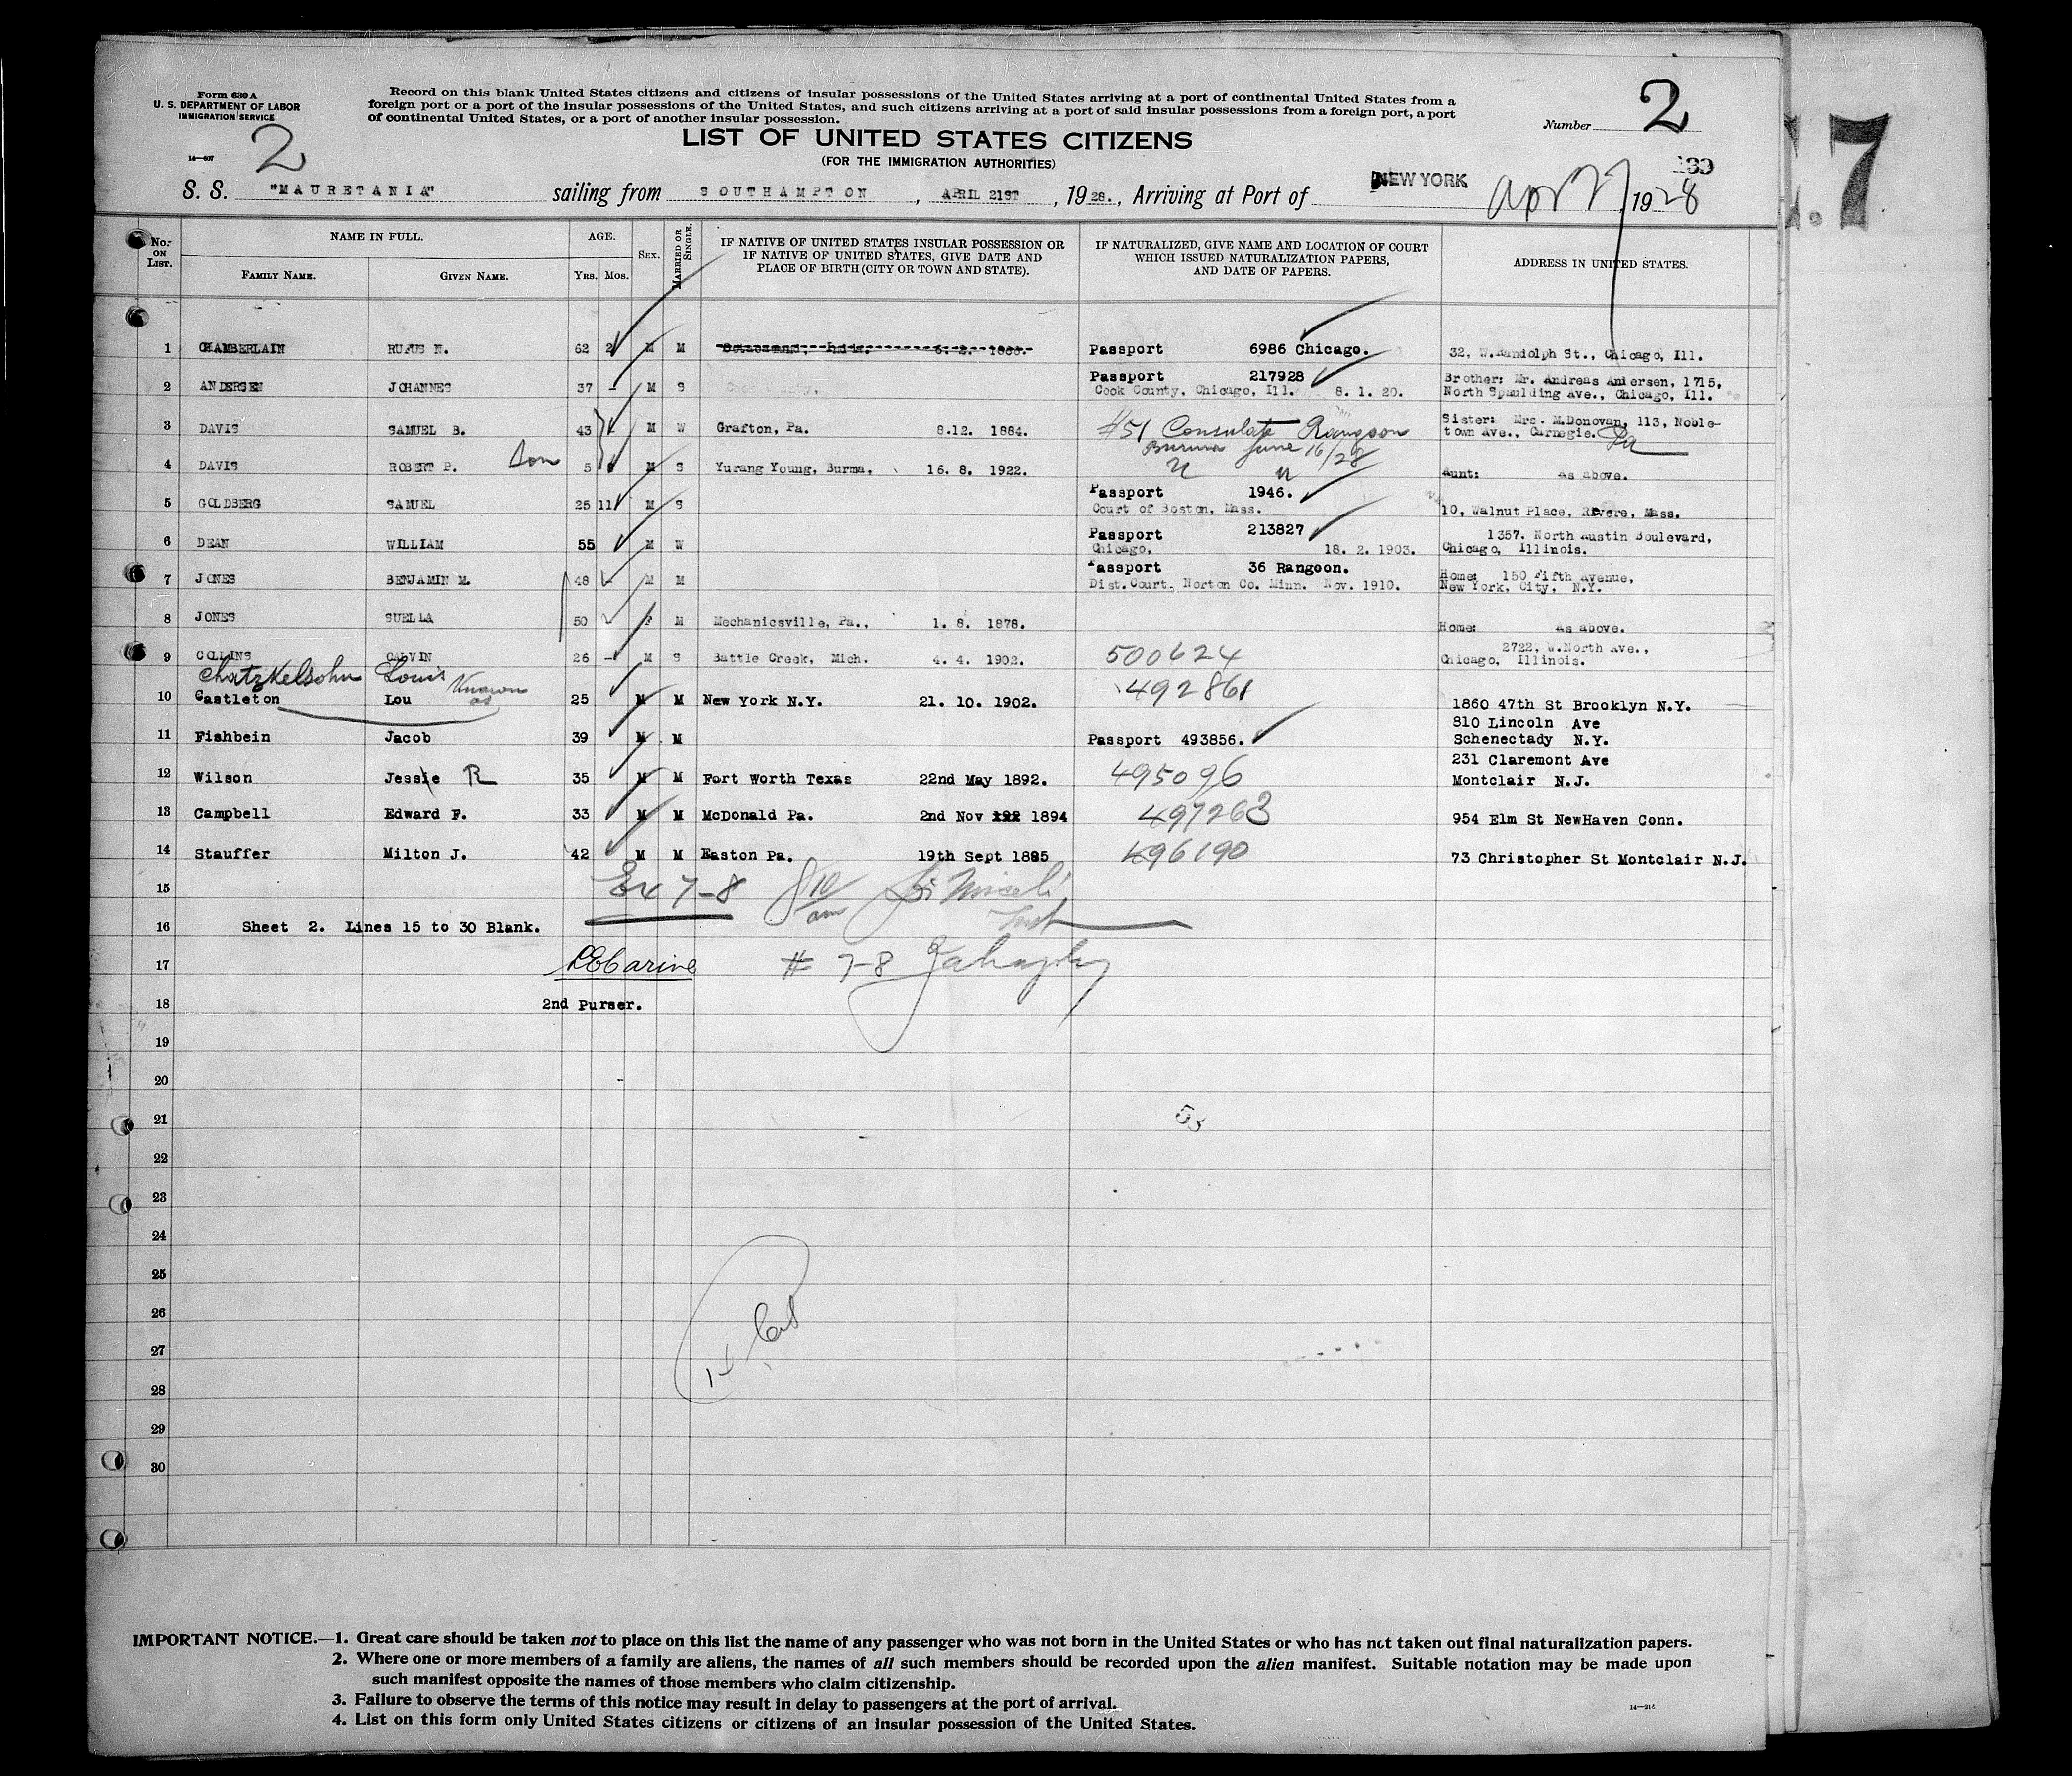 Form 630 A
U. S. DEPARTMENT OF LABOR
IMMIGRATION SERVICE
14—607
2
Record on this blank United States citizens and citizens of insular possessions of the United States arriving at a port of continental United States from a
foreign port or a port of the insular possessions of the United States, and such citizens arriving at a port of said insular possessions from a foreign port, a port
of continental United States, or a port of another insular possession.
LIST OF UNITED STATES CITIZENS
(FOR THE IMMIGRATION AUTHORITIES)
Number 2
7
S. S. "MAURETANIA" sailing from SOUTHAMPTON, APRIL 21ST, 1928., Arriving at Port of NEW YORK Apr 27 1928
No. ON LIST.
NAME IN FULL.
FAMILY NAME.
GIVEN NAME.
AGE.
YRS. MOS.
SEX.
MARRIED OR SINGLE.
IF NATIVE OF UNITED STATES INSULAR POSSESSION OR
IF NATIVE OF UNITED STATES, GIVE DATE AND
PLACE OF BIRTH (CITY OR TOWN AND STATE).
IF NATURALIZED, GIVE NAME AND LOCATION OF COURT
WHICH ISSUED NATURALIZATION PAPERS,
AND DATE OF PAPERS.
ADDRESS IN UNITED STATES.
1 CHAMBERLAIN RUFUS N. 62 2 M M Passport 6986 Chicago. 32, W.Randolph St., Chicago, Ill.
2 ANDERSEN JOHANNES 37 - M S Passport 217928
Cook County, Chicago, Ill. 8. 1. 20.
Brother: Mr. Andreas Andersen, 1715,
North Spaulding Ave., Chicago, Ill.
3 DAVIS SAMUEL B. 43 M W Grafton, Pa. 8.12. 1884. #51 Consulate Rangoon
Burma June 16/28
Sister: Mrs. M.Donovan, 113, Noble-
town Ave., Carnegie. Pa
4 DAVIS ROBERT P. Son 5 M S Yurang Young, Burma, 16. 8. 1922. " "
Aunt: As above.
5 GOLDBERG SAMUEL 25 11 M S Passport 1946.
Court of Boston, Mass.
10, Walnut Place, Revere, Mass.
6 DEAN WILLIAM 55 M W Passport 213827
Chicago, 18. 2. 1903.
1357. North Austin Boulevard,
Chicago, Illinois.
7 JONES BENJAMIN M. 48 - M M Passport 36 Rangoon.
Dist.Court. Norton Co. Minn. Nov. 1910.
Home: 150 Fifth Avenue,
New York, City, N.Y.
8 JONES SUELLA 50 F M Mechanicsville, Pa., 1. 8. 1878.
Home: As above.
9 COLLINS CALVIN 26 - M S Battle Creek, Mich. 4. 4. 1902. 500624
2722, W.North Ave.,
Chicago, Illinois.
Chatzkelsohn Louis Known as
10 Castleton Lou 25 M M New York N.Y. 21. 10. 1902. 492861 1860 47th St Brooklyn N.Y.
11 Fishbein Jacob 39 M M Passport 493856.
810 Lincoln Ave
Schenectady N.Y.
12 Wilson Jessie R 35 M M Fort Worth Texas 22nd May 1892. 495096
231 Claremont Ave
Montclair N.J.
13 Campbell Edward F. 33 M M McDonald Pa. 2nd Nov 1894 497263 954 Elm St NewHaven Conn.
14 Stauffer Milton J. 42 M M Easton Pa. 19th Sept 1885 496190 73 Christopher St Montclair N.J.
15 Ex 7-8 8 10/am
16 Sheet 2. Lines 15 to 30 Blank.
17 # 7-8
18 2nd Purser.
19
20
21
22
23
24
25
26
27
28
29
30
53
IMPORTANT NOTICE.—1. Great care should be taken not to place on this list the name of any passenger who was not born in the United States or who has not taken out final naturalization papers.
2. Where one or more members of a family are aliens, the names of all such members should be recorded upon the alien manifest. Suitable notation may be made upon
such manifest opposite the names of those members who claim citizenship.
3. Failure to observe the terms of this notice may result in delay to passengers at the port of arrival.
4. List on this form only United States citizens or citizens of an insular possession of the United States.